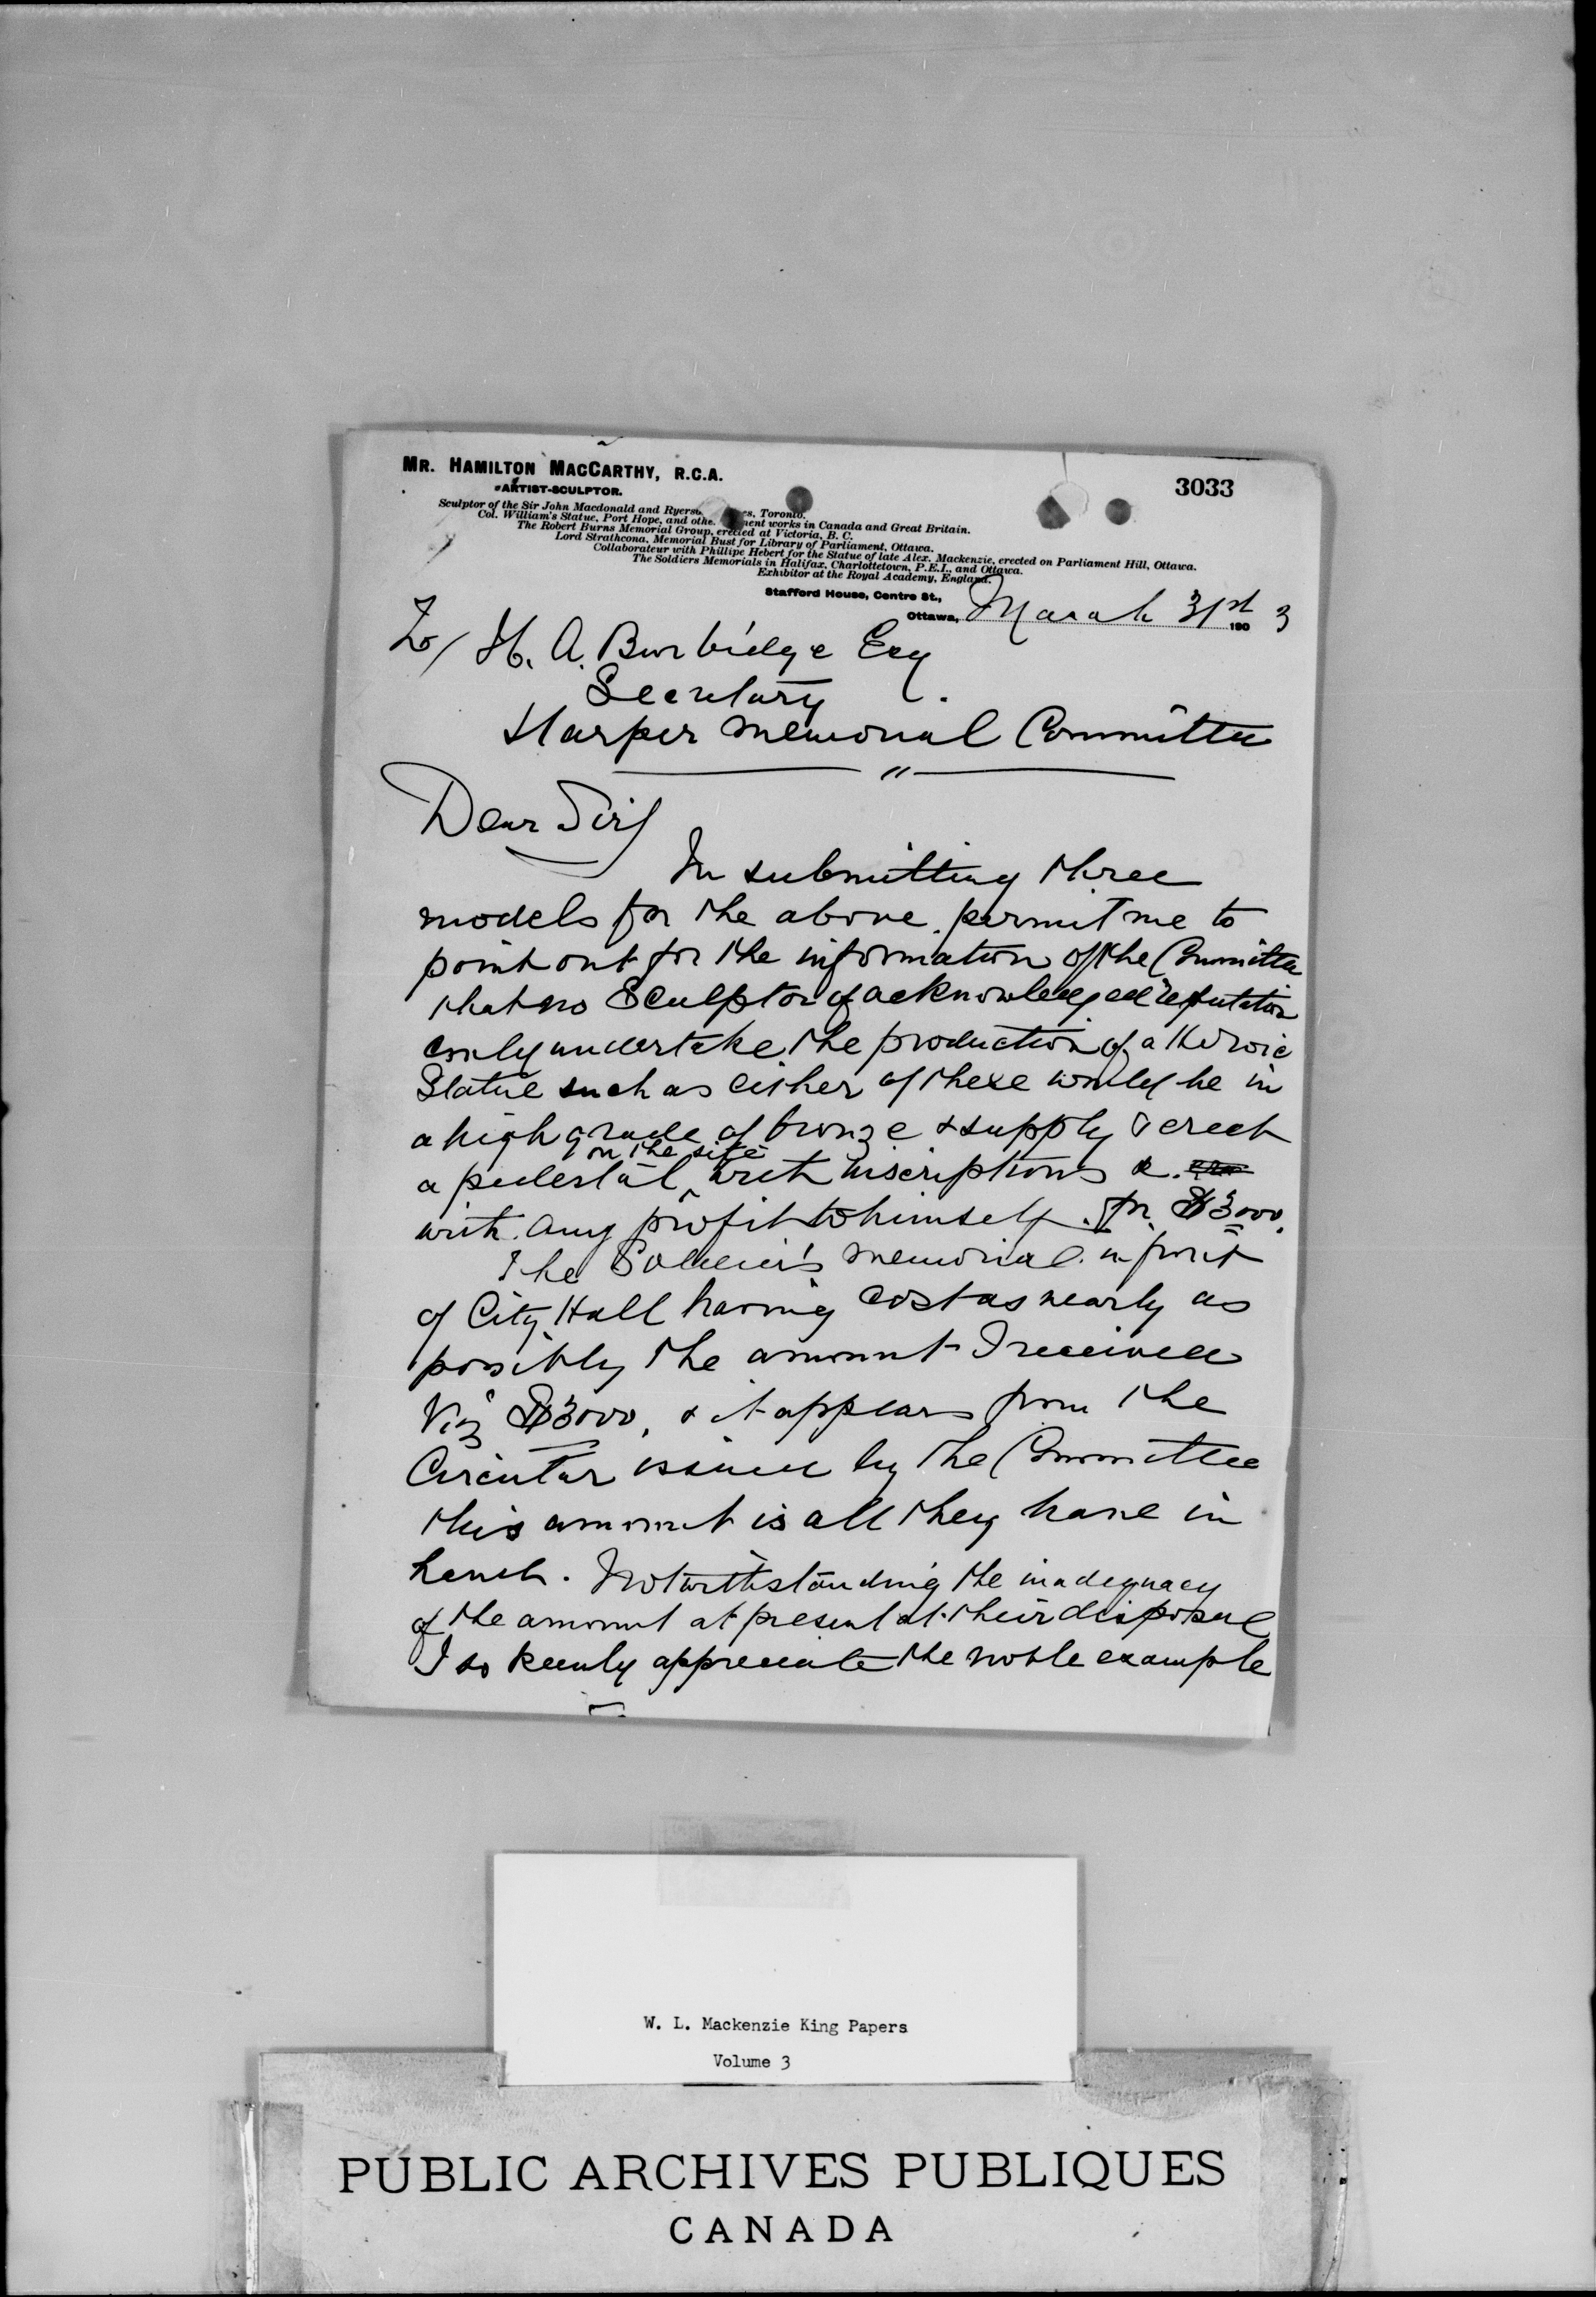 MR. HAMILTON MACCARTHY, R.C.A.
ARTIST-SCULPTOR.
3033
Sculptor of the Sir John Macdonald and Ryers es, Toronto.
Col. William's Statue, Port Hope, and othe ment works in Canada and Great Britain.
The Robert Burns Memorial Group, erected at Victoria, B. C.
Lord Strathcona, Memorial Bust for Library of Parliament, Ottawa.
Collaborateur with Phillipe Hebert for the Statue of late Alex. Mackenzie, erected on Parliament Hill, Ottawa.
The Soldiers Memorials in Halifax, Charlottetown, P.E.I., and Ottawa.
Exhibitor at the Royal Academy, England.
Stafford House, Centre St.,
Ottawa, March 31st 190 3
To/ H. A. Burbidge Esq
Secretary
Harper Memorial Committee
Dear Sir/
In submitting three
models for the above permit me to
point out for the information of the Committee
that no Sculptor of acknowledged reputation
could undertake the production of a Heroic
Statue such as either of these would be in
a high grade of bronze & supply & erect
on the site
a pedestal ^ with inscriptions &.
with any profit to himself for $3000.
The Soldier's Memorial in front
of City Hall having cost as nearly as
possibly the amount I received
Viz $3000, & it appears from the
Circular issued by the Committee
this amount is all they have in
hand. Notwithstanding the inadequacy
of the amount at present at their disposal
I so keenly appreciate the noble example
W. L. Mackenzie King Papers
Volume 3
PUBLIC ARCHIVES PUBLIQUES
CANADA